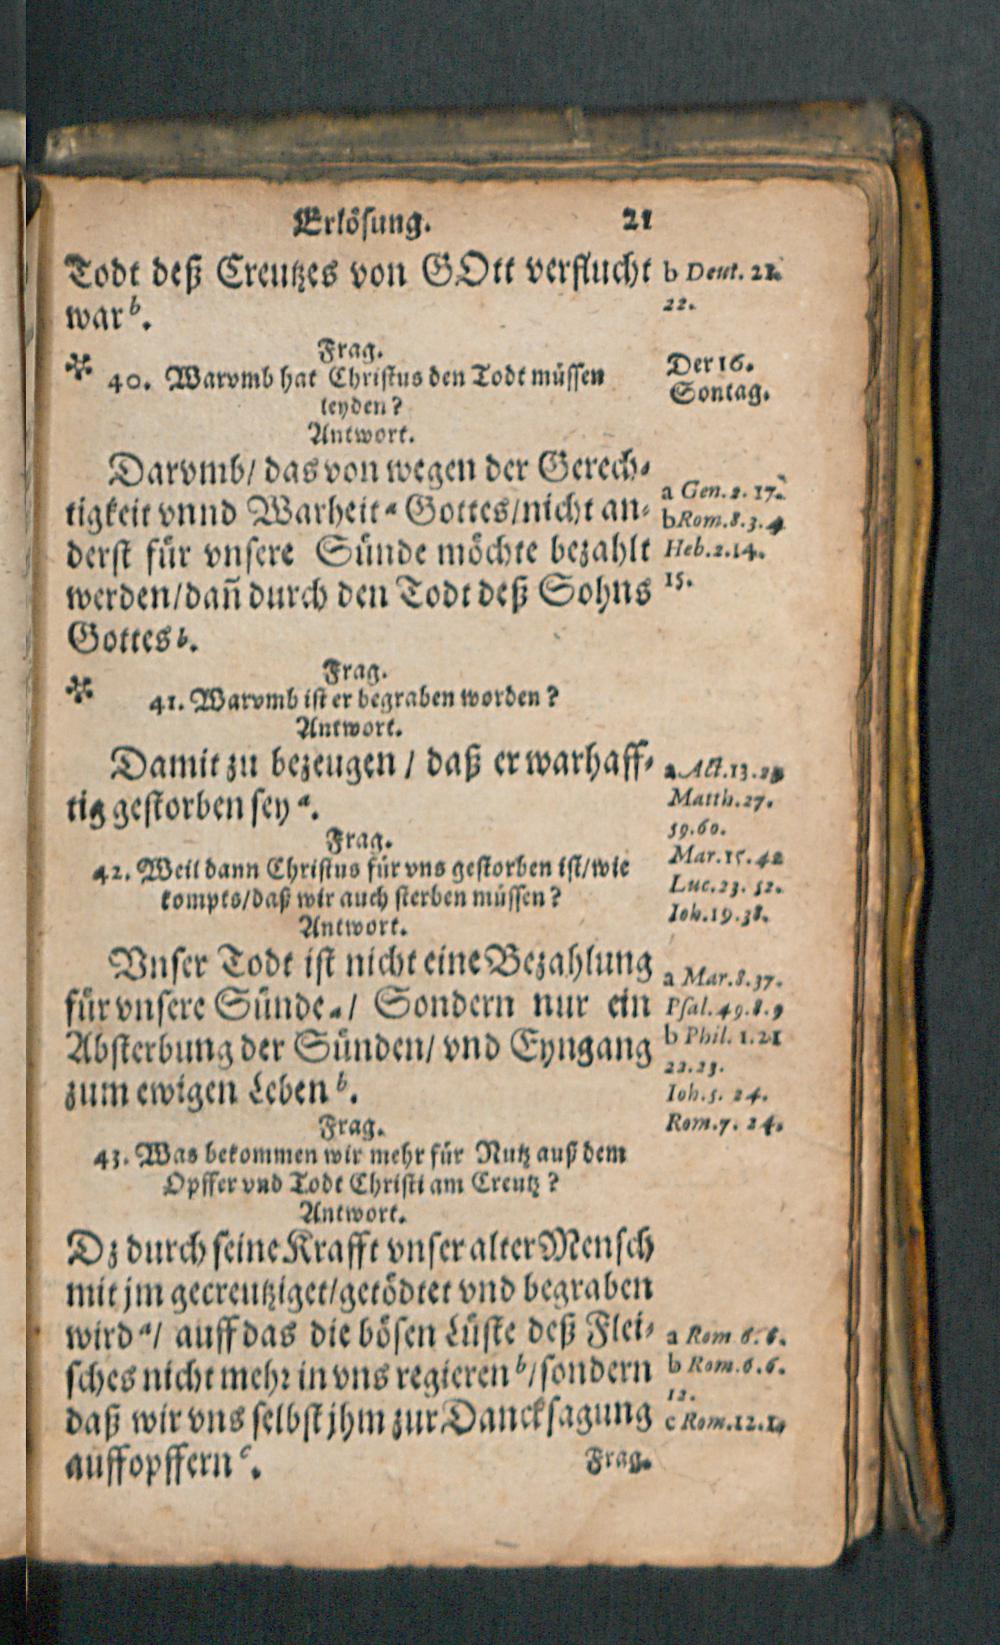 Erlösung. 21
Todt deß Creutzes von GOtt verflucht
war b.
b Deut. 21.
22.
Frag.
40. Warvmb hat Christus den Todt müssen
leyden?
Der 16.
Sontag.
Antwort.
Darvmb/ das von wegen der Gerech-
tigkeit vnnd Warheit a Gottes/nicht an-
derst für vnsere Sünde möchte bezahlt
werden/dañ durch den Todt deß Sohns
Gottes b.
a Gen. 2. 17.
b Rom. 8. 3. 4
Heb. 2. 14.
15.
Frag.
41. Warvmb ist er begraben worden?
Antwort.
Damit zu bezeugen / daß er warhaff-
tig gestorben sey a.
a Act. 13. 29
Matth. 27.
59. 60.
Mar. 15. 42
Luc. 23. 52.
Ioh. 19. 38.
Frag.
42. Weil dann Christus für vns gestorben ist/wie
kompts/daß wir auch sterben müssen?
Antwort.
Vnser Todt ist nicht eine Bezahlung
für vnsere Sünde a/ Sondern nur ein
Absterbung der Sünden/ vnd Eyngang
zum ewigen Leben b.
a Mar. 8. 37.
Psal. 49. 8. 9
b Phil. 1. 21
22. 23.
Ioh. 5. 24.
Rom. 7. 24.
Frag.
43. Was bekommen wir mehr für Nutz auß dem
Opffer vnd Todt Christi am Creutz?
Antwort.
Dz durch seine Krafft vnser alter Mensch
mit jm gecreutziget/getödtet vnd begraben
wird a/ auff das die bösen Lüste deß Flei-
sches nicht mehr in vns regieren b/sondern
daß wir vns selbst jhm zur Dancksagung
auffopffern c.
a Rom 6. 6.
b Rom. 6. 6.
12.
c Rom. 12. 1.
Frag.